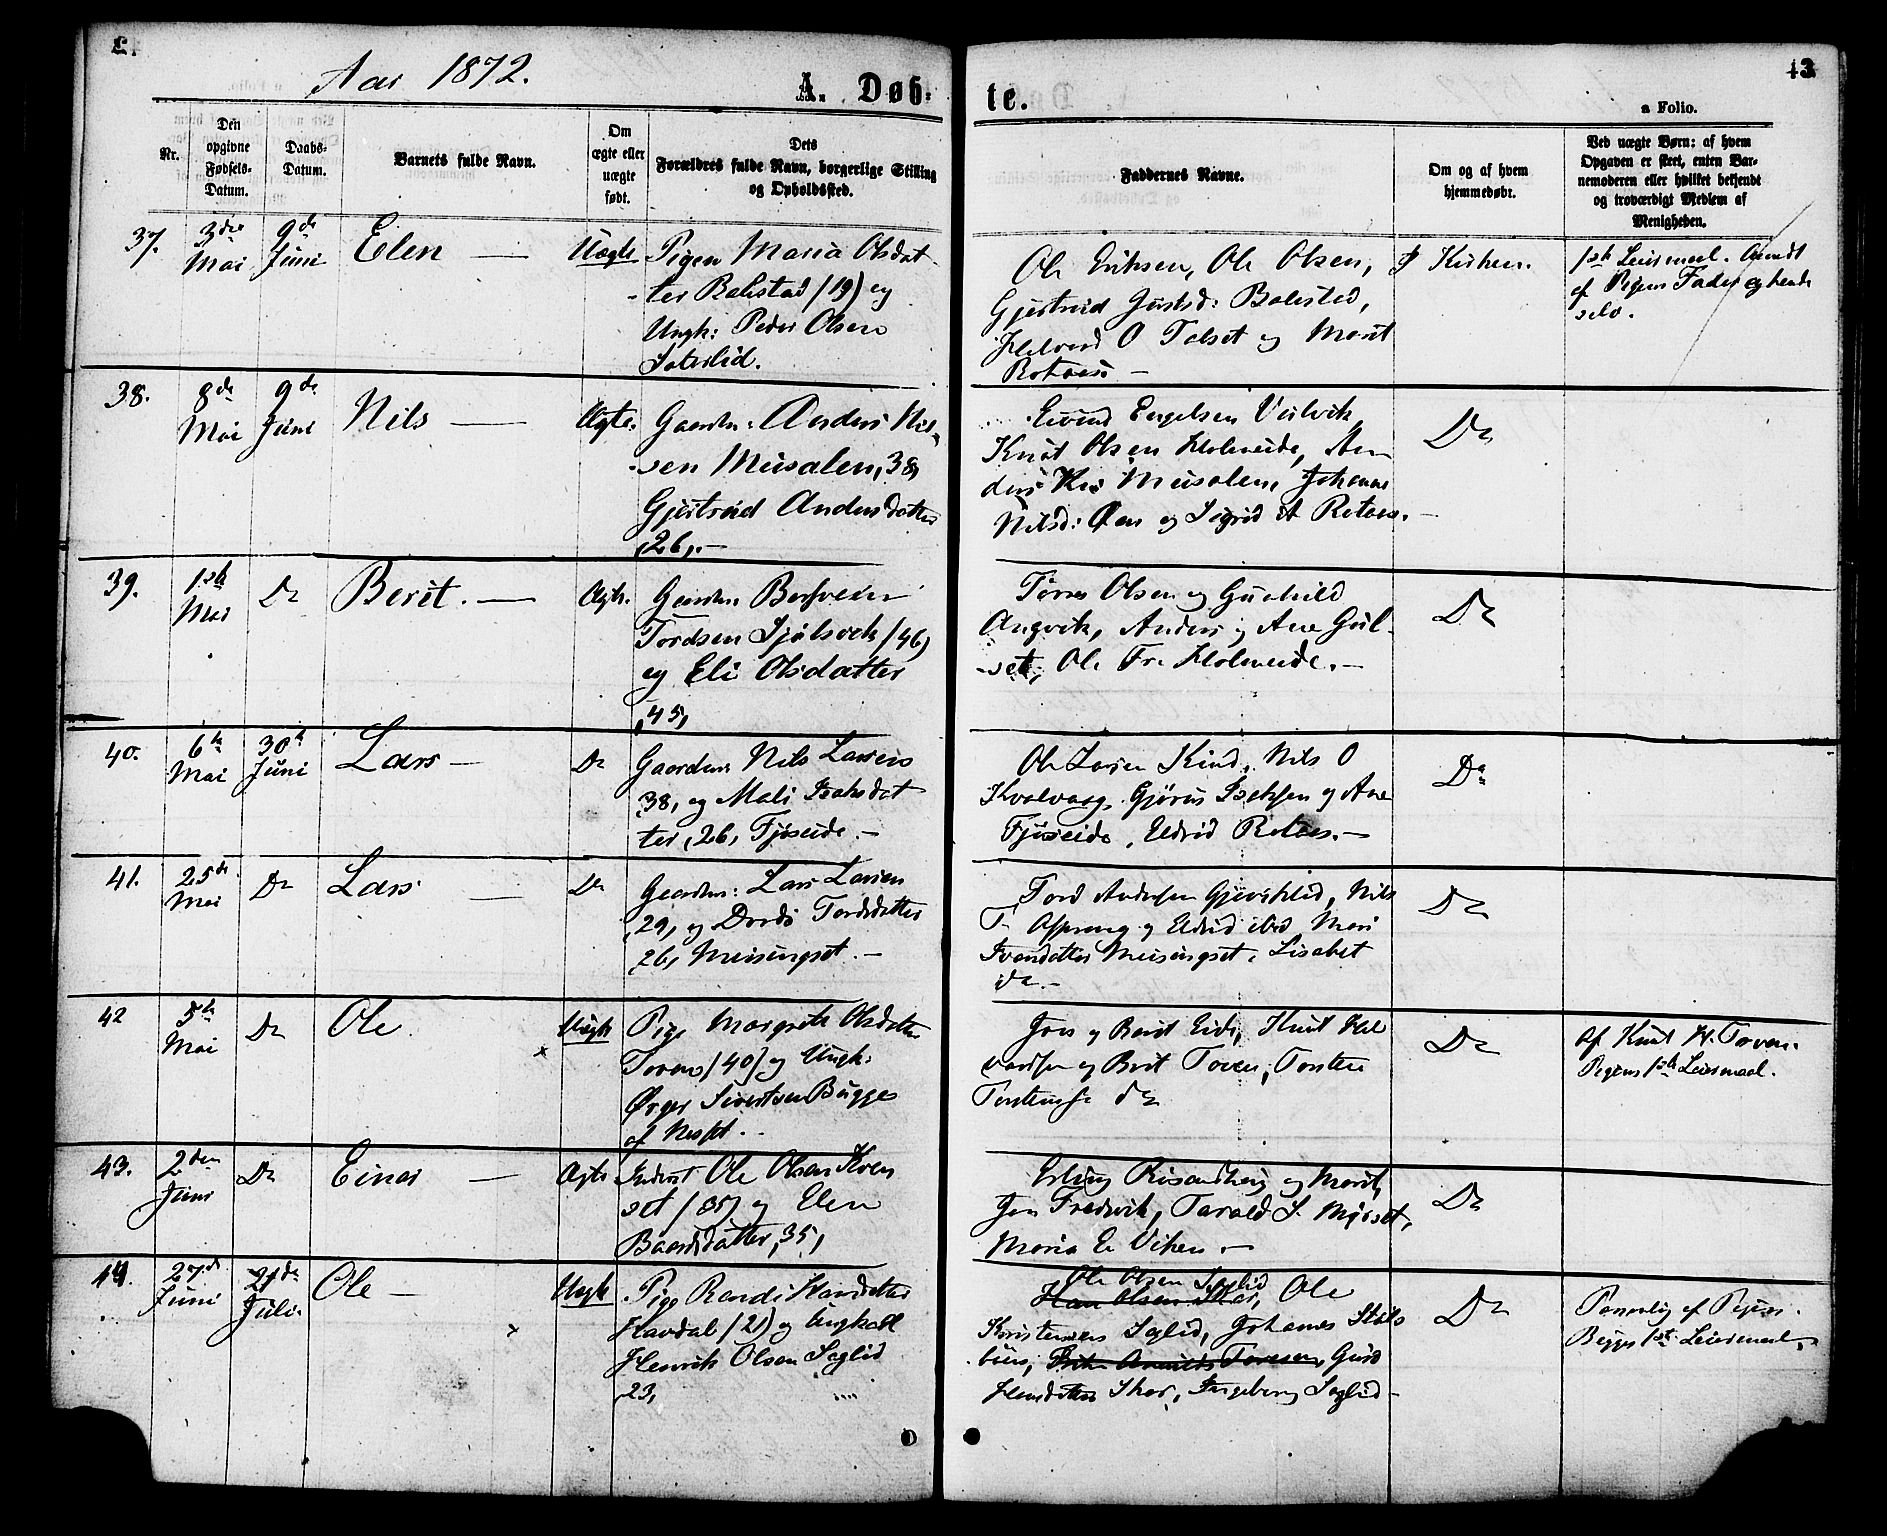 Aar 1872.
A. Døb-
te.
43
a Folio.
Nr.
Den
opgivne
Fødsels-
Datum.
Daabs-
Datum.
Barnets fulde Navn.
Om
ægte eller
uægte
født.
Dets
Forældres fulde Navn, borgerlige Stilling
og Opholdssted.
Faddernes Navne.
Om og af hvem
hjemmedøbt.
Ved uægte Børn: af hvem
Opgaven er skeet, enten Bar-
nemoderen eller hvilket bekjendt
og troværdigt Medlem af
Menigheden.
37.
3die
Mai
9de
Juni
Elen
Uægte
Pigen Maria Olsdat-
ter Bolestad (19) og
Ungk: Peder Olsen
Sæterlid.
Ole Eriksen, Ole Olsen,
Gjertrud Bolestad,
O Talset og Marit
Kirken.
1ste Leiermaal. Anmeldt
af Pigens Fader og hende
selv.
38.
8de
Mai
9de
Juni
Nils
Ægte.
Gaardm: Anders Nil-
sen Meisalen, 38,
Gjertrud Andersdatter
26,.-
Eivind Engelsen
Knut Olsen Holmeide, An-
ders Meisalen, Johanne
Nilsd: Øen og Sigrid A Rotaas.
Do
39.
1ste
Mai
Do
Berit.
Ægte.
Gaardm: Bersvend
Tordsen Sjølsvik (46)
og Eli Olsdatter
,45,
Tørres Olsen og Gunhild
Angvik, Anders og Ane Gul-
set, Ole Fr. Holmeide.-
Do
40.
6te
Mai
30te
Juni
Lars
Do
Gaardm: Nils Larsen
38, og Mali Isaksdat-
ter, 26, Fjøseide.-
Ole Larsen Nils O
Kvalvaag, Gjørus Isaksen og Ane
Fjøseide, Eldrid Rotaas.-
Do
41.
25de
Mai
Do
Lars
Do
Gaardm: Lars Larsen
,29, og Dordi Tordsdatter
26, Meisingset.-
Tord Andersen Nils
T. Aspvang og Eldrid ibid Mari
Iversdatter Meisingset, Lisabet
do.-
Do
42
5te
Mai
Do
Ole.
Uægte
Pige Margrete Olsdatter
Torven (40) og Ungk:
Ørger Sivertsen Bugge
af Nesset.
Jon og Berit Eide, Knut Hal-
vorsen og Brit Torven, Torsten
Torstensen do
Do
Af Knut H. Torven.
Pigens 1ste Leiermaal.
43.
2den
Juni
Do
Einar
Ægte
Inderst Ole Olsen Kven-
set (35) og Elen
Baardsdatter, 35,
Erling Risandberg og Marit,
Jon Fredrik, Tarald S. Mjøset,
Maria E. Viken.-
Do
44.
27de
Juni
21de
Juli.
Ole
Uægte
Pige Randi Hansdatter
Kavdal (21) og Ungkarl
Henrik Olsen Søglid
23,
Ole Olsen Søglid
Hans Olsen Skar, Ole
Kristensen Søglid, Johannes
Gurid
Hansdatter Skar, Ingeborg Søglid-
Do
Personlig af Pigen.
Begges 1ste Leiermaal.